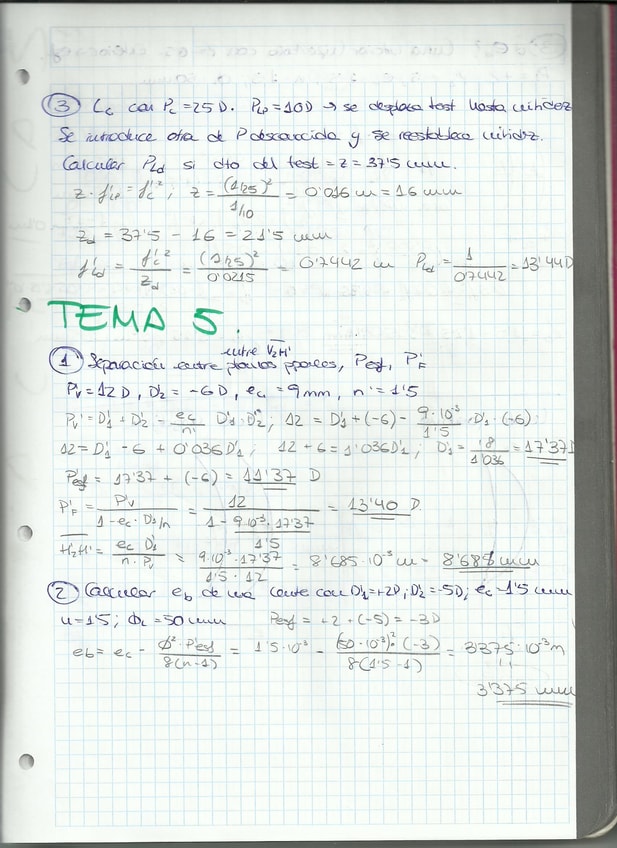 ③ Lc con Pc = 25D. PLp = 10D → se desplaza test hasta nitidez
Se introduce otra de P desconocida y se reestablece nitidez.
Calcular PLd si dto del test = z = 37'5 mm.
z · f'Lp = f'c²; z = (1/25)² / 1/10 = 0'016 m = 16 mm
zd = 37'5 - 16 = 21'5 mm
f'Ld = f'c² / zd = (1/25)² / 0'0215 = 0'7442 m PLd = 1 / 0'7442 = 13'44D
TEMA 5.
① Separación entre planos ppales, Pesf, P'F
entre V2H'
P'v = 12D, D'2 = -6D, ec = 9mm, n = 1'5
P'v = D'1 + D'2 - ec/n · D'1 · D'2; 12 = D'1 + (-6) - 9·10⁻³/1'5 · D'1 · (-6)
12 = D'1 - 6 + 0'036D'1; 12 + 6 = 1'036D'1; D'1 = 18/1'036 = 17'37D
P'esf = 17'37 + (-6) = 11'37 D
P'F = P'v / 1 - ec · D'1/n = 12 / 1 - 9·10⁻³ · 17'37 / 1'5 = 13'40 D.
H'2H' = ec D'1 / n · Pv = 9·10⁻³ · 17'37 / 1'5 · 12 = 8'685·10⁻³ m = 8'685 mm
② Calcular eb de una lente con D'1 = +2D; D'2 = -5D; ec = 1'5 mm
n = 1'5; ΦL = 50 mm Pesf = +2 + (-5) = -3D
eb = ec - Φ² · P'esf / 8(n-1) = 1'5·10⁻³ - (50·10⁻³)² · (-3) / 8(1'5-1) = 3'375·10⁻³ m
3'375 mm